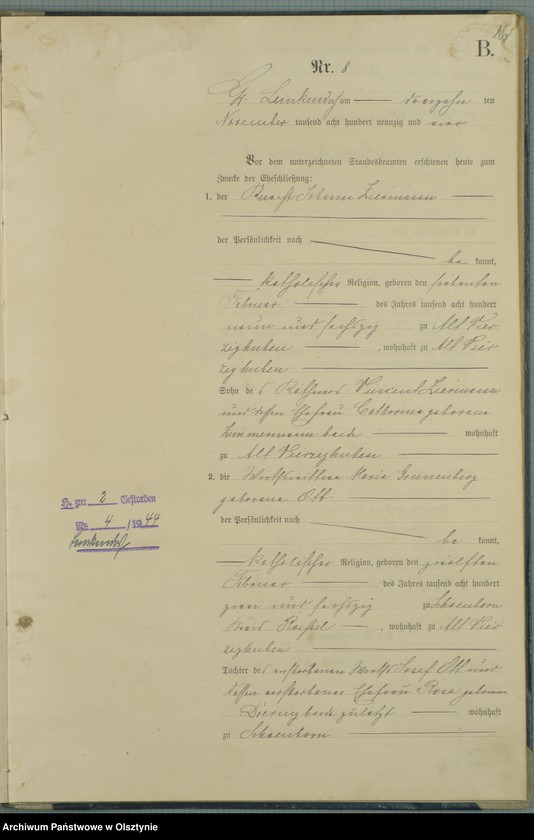 16
B.
Nr. 8
Gr. Lemkendorf am dreizehn ten
November tausend acht hundert neunzig und vier
Vor dem unterzeichneten Standesbeamten erschienen heute zum
Zwecke der Eheschließung:
1. der Knecht Johann Ziermann
der Persönlichkeit nach
be kannt,
katholischer Religion, geboren den siebenten
Februar des Jahres tausend acht hundert
neun und sechszig zu Alt Vier
zighuben, wohnhaft zu Alt Vier
zighuben
Sohn des Käthners Vincent Ziermann
und dessen Ehefrau Catharina geborene
Zimmermann beide wohnhaft
zu Alt Vierzighuben
2. die Wirthswittwe Maria Grunenberg
geborene Ott
der Persönlichkeit nach
be kannt,
katholischer Religion, geboren den zwölften
Februar des Jahres tausend acht hundert
zwei und sechszig zu Schoenborn
Kreis Roessel, wohnhaft zu Alt Vier
zighuben
Tochter des verstorbenen Wirths Josef Ott und
dessen verstorbener Ehefrau Rosa geborene
beide zuletzt wohnhaft
zu Schoenborn
zu 2 Gestorben
Nr. 4/1944
Lemkendorf
Archiwum Państwowe w Olsztynie